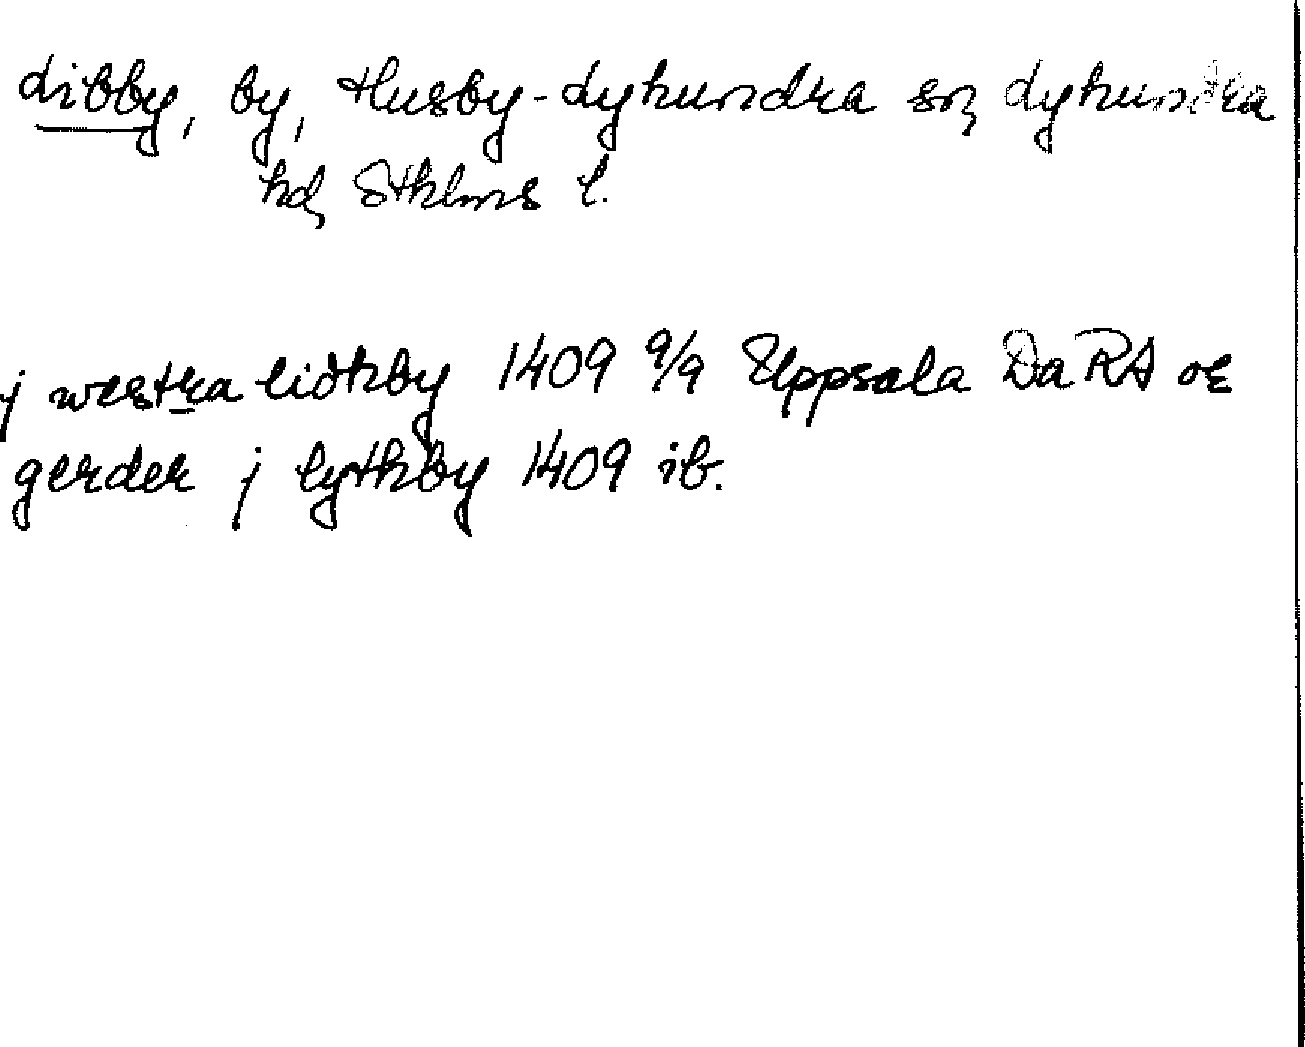 Libby, by, Husby-Lyhundra sn, Lyhundra
hd, Sthlms l.
j westra lidhby 1409 9/9 Uppsala Da RA or
gerder j lythby 1409 ib.